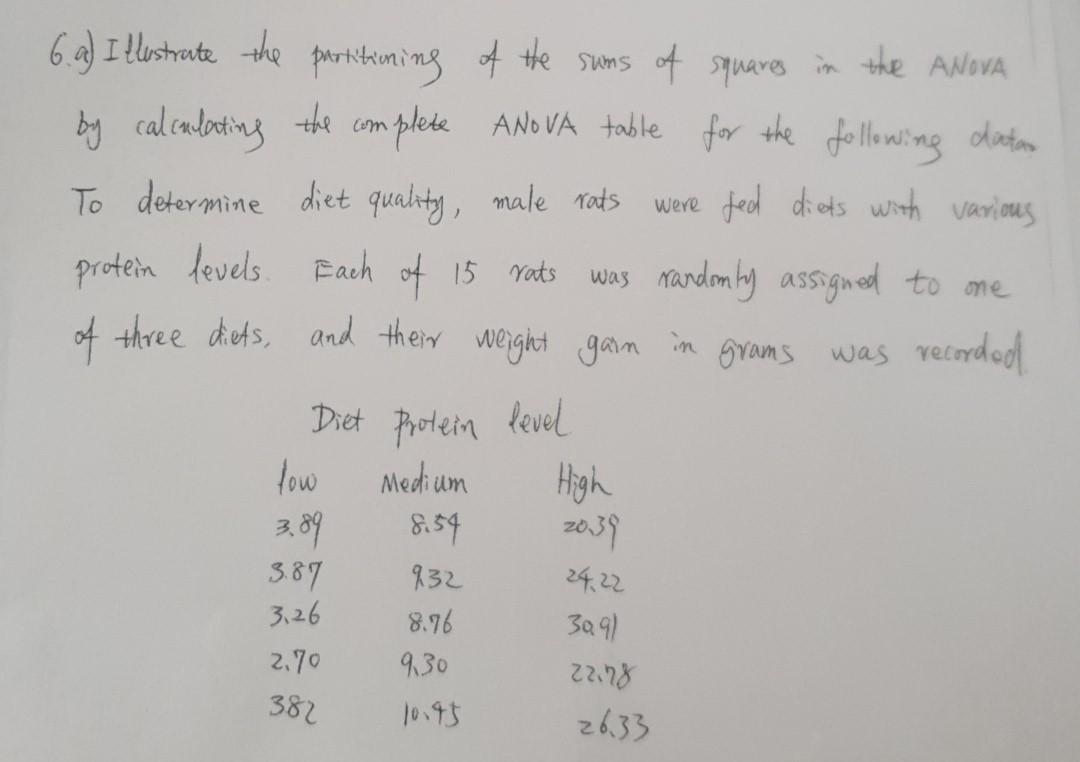 6.a) Illustrate the partitioning of the sums of squares in the ANOVA
by calculating the complete ANOVA table for the following data
To determine diet quality, male rats were fed diets with various
protein levels. Each of 15 rats was randomly assigned to one
of three diets, and their weight gain in grams was recorded.
Diet Protein level
low Medium High
3.89 8.54 20.39
3.87 9.32 24.22
3.26 8.76 30.91
2.70 9.30 22.78
3.82 10.45 26.33